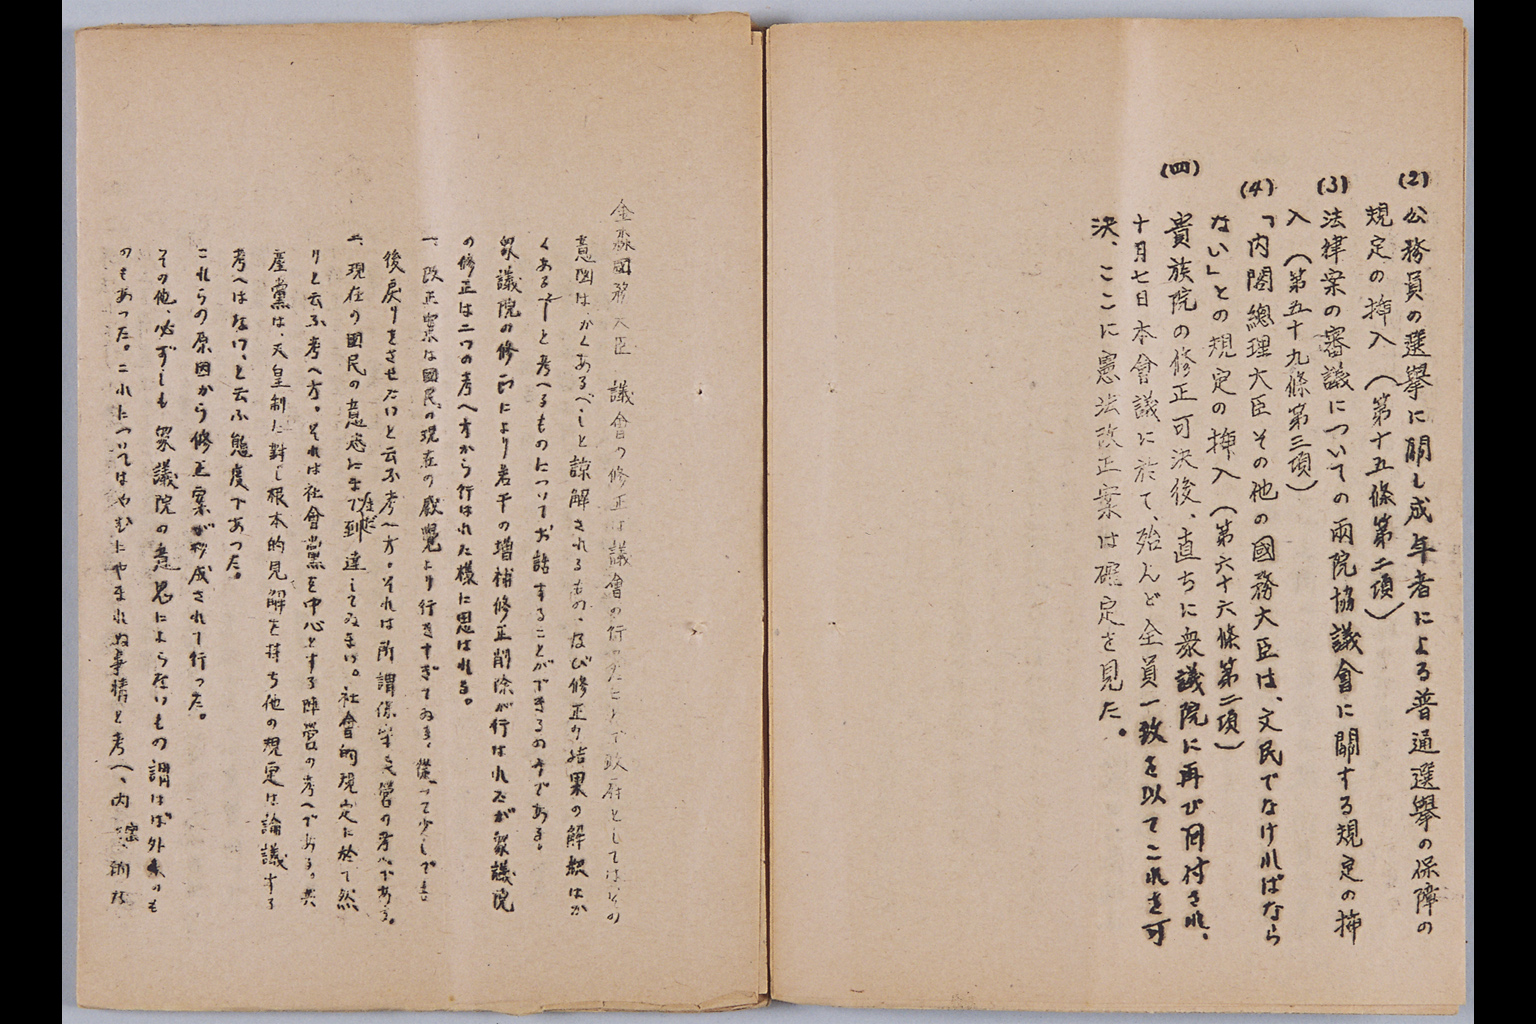 (2) 公務員の選擧に關し成年者による普通選擧の保障の
規定の揷入(第十五條第二項)
(3) 法律案の審議についての兩院協議會に關する規定の揷
入(第五十九條第三項)
(4) 「內閣總理大臣その他の國務大臣は、文民でなければなら
ない」との規定の揷入(第六十六條第二項)
(四) 貴族院の修正可決後、直ちに衆議院に再び回付され、
十月七日本會議に於て、殆んど全員一致を以てこれを可
決、ここに憲法改正案は確定を見た。
金森國務大臣 議會の修正は議會の行つたことで政府としてはその
意圖は、かくあるべしと諒解されるもの、及び修正の結果の解釋はか
くあるべしと考へるものについてお話することができるのみである。
衆議院の修正により若干の增補修正削除が行はれたが衆議院
の修正は二つの考へ方から行はれた樣に思はれる。
一、改正案は國民の現在の感覺より行きすぎてゐる、從つて少しでも
後戾りをさせたいと云ふ考へ方。それは所謂保守陣營の考へである。
二、現在の國民の意志にまで未だ到達してゐない。社會的規定に於て然
りと云ふ考へ方。それは社會黨を中心とする陣營の考へである。共
產黨は、天皇制に對し根本的見解を持ち他の規定は論議する
考へはない、と云ふ態度であつた。
これらの原因から修正案が形成されて行つた。
その他、必ずしも衆議院の意思によらないもの謂はば外來のも
のもあつた。これについてはやむにやまれぬ事情と考へ、內密的な